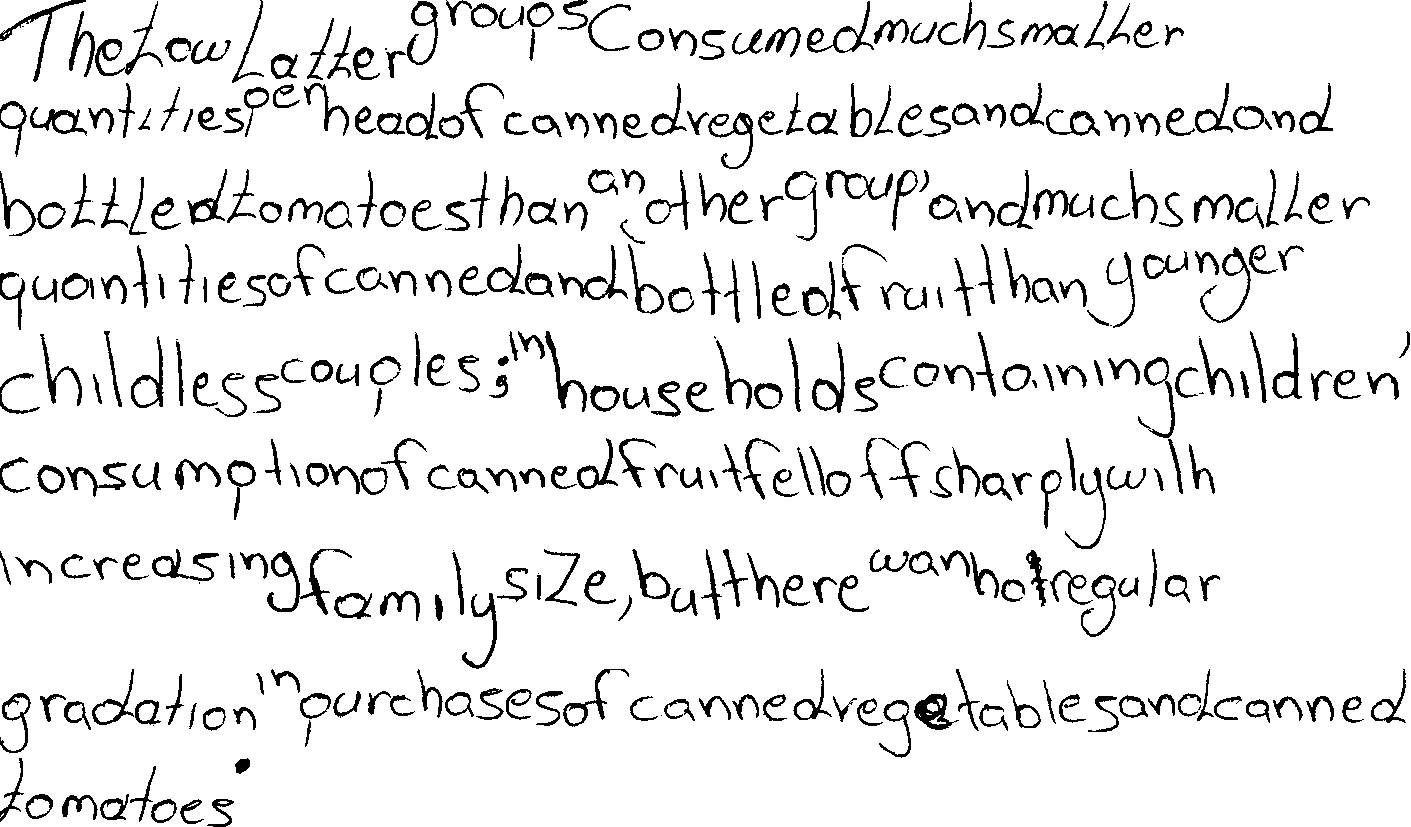 The Low Latter groups Consumed much smaller
quantities per head of canned vegetables and canned and
bottled tomatoes than an other group, and much smaller
quantities of canned and bottled fruit than younger
childless couples; in households containing children,
consumption of canned fruit fell off sharply with
increasing family size, but there wan not regular
gradation in purchases of canned vegetables and canned
tomatoes.